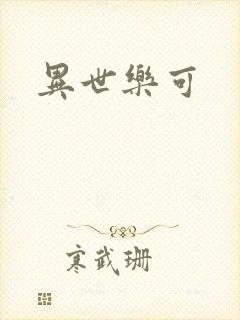 異世樂可
寒武珊